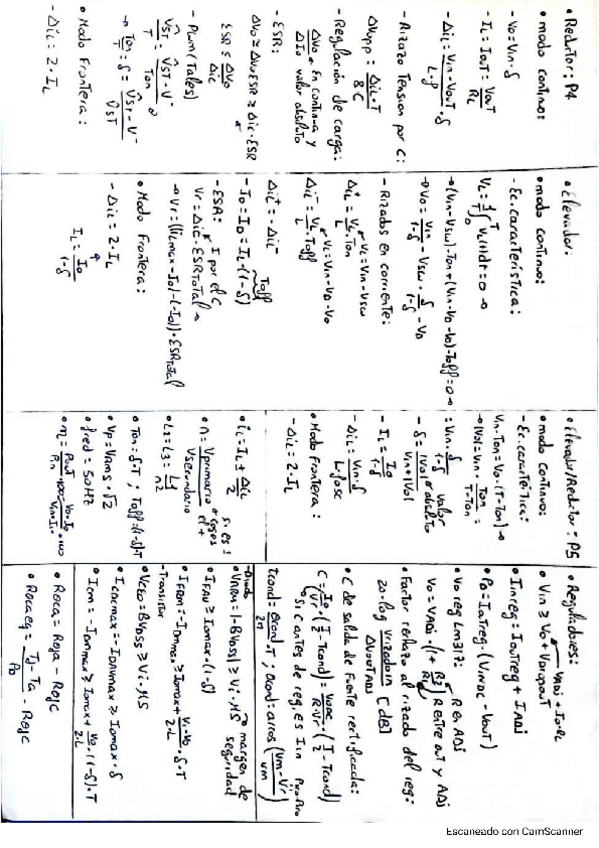 • Reductor: P4
• modo continuo:
- Vo = Vin·δ
- IL = Iout = Vout/RL
- ΔiL = (Vin - Vout)/(L·f)·δ
- Rizazo Tension por C:
ΔVopp = ΔiL·T/(8C)
- Regulación de carga:
ΔVo/ΔIo En continua y valor absoluto
- ESR:
ΔVo ≈ ΔVoESR ≥ Δic·ESR
ESR ≤ ΔVo/Δic
- PWM (Tales)
V̂ST/T = (V̂ST - V⁻)/Ton →
→ Ton/T = δ = (V̂ST - V⁻)/V̂ST
• Modo Frontera:
- ΔiL = 2·IL
• Elevador:
• modo continuo:
- Ec. característica:
VL = 1/T ∫₀ᵀ VL(t)dt = 0 →
→ (Vin - Vsw)·Ton + (Vin - VD - Vo)·Toff = 0 →
→ Vo = Vin/(1-δ) - Vsw·δ/(1-δ) - VD
- Rizados en corriente:
ΔiL⁺ = VL/L·Ton VL = Vin - Vsw
ΔiL⁻ = VL/L·Toff VL = Vin - VD - Vo
ΔiL⁺ = -ΔiL⁻
- Io = ID = IL·(1-δ)
Toff
- ESR: I por el C
Vr = Δic·ESRTotal →
→ Vr = ((ILmax - Io) - (-Io))·ESRTotal
• Modo Frontera:
- ΔiL = 2·IL
IL = Io/(1-δ)
• Elevador/Reductor: P5
• modo continuo:
- Ec. característica:
Vin·Ton = Vo·(T - Ton) →
→ |Vo| = Vin·Ton/(T - Ton) =
= Vin·δ/(1-δ)
- δ = |Vo|/(Vin + |Vo|) valor absoluto
- IL = Io/(1-δ)
- ΔiL = Vin·δ/(L·fosc)
• Modo Frontera:
- ΔiL = 2·IL
• iL = IL ± ΔiL/2
• n = Vprimario/Vsecundario
• L2 = L3 = L1/n²
• Ton = δ·T ; Toff = (1-δ)·T
• Vp = VRMS·√2
• fred = 50Hz
• η = Pout/Pin·100 = Vo·Io/(Vin·Iin)·100
• Reguladores:
VADJ + Io·RL
• Vin ≥ Vo + Vdropout
• Iinreg = Ioutreg + IADJ
• PD = Ioutreg·(VinDC - Vout)
• Vo reg LM317:
Vo = VADJ·(1 + R2/R1) R en ADJ
R entre out y ADJ
• Factor rechazo al rizado del reg:
20·log Vrizadoin/ΔVoutADJ [dB]
• C de salida de Fuente rectificada:
C = Io/Vr·(T/2 - Tcond) = VoDC/(R·Vr)·(T/2 - Tcond)
Si C antes de reg, es Iin
tcond = θcond/2π·T ; θcond = arcos((Vm - Vr)/Vm)
-Diodo
• VRRM = |-BVDSS| ≥ Vi·MS margen de seguridad
• IFAV ≥ Iomax·(1-δ)
• IFRM = -IDmmax ≥ Iomax + (Vi-Vo)/(2·L)·δ·T
-Transistor
• VCEO = BVDSS ≥ Vi·MS
• ICAVmax = -IDAVmax ≥ Iomax·δ
• ICM = -IDmmax ≥ Iomax + Vo/(2·L)·(1-δ)·T
• RθCA = RθJA - RθJC
• RθCAeq = (TJ - Ta)/PD - RθJC
Escaneado con CamScanner